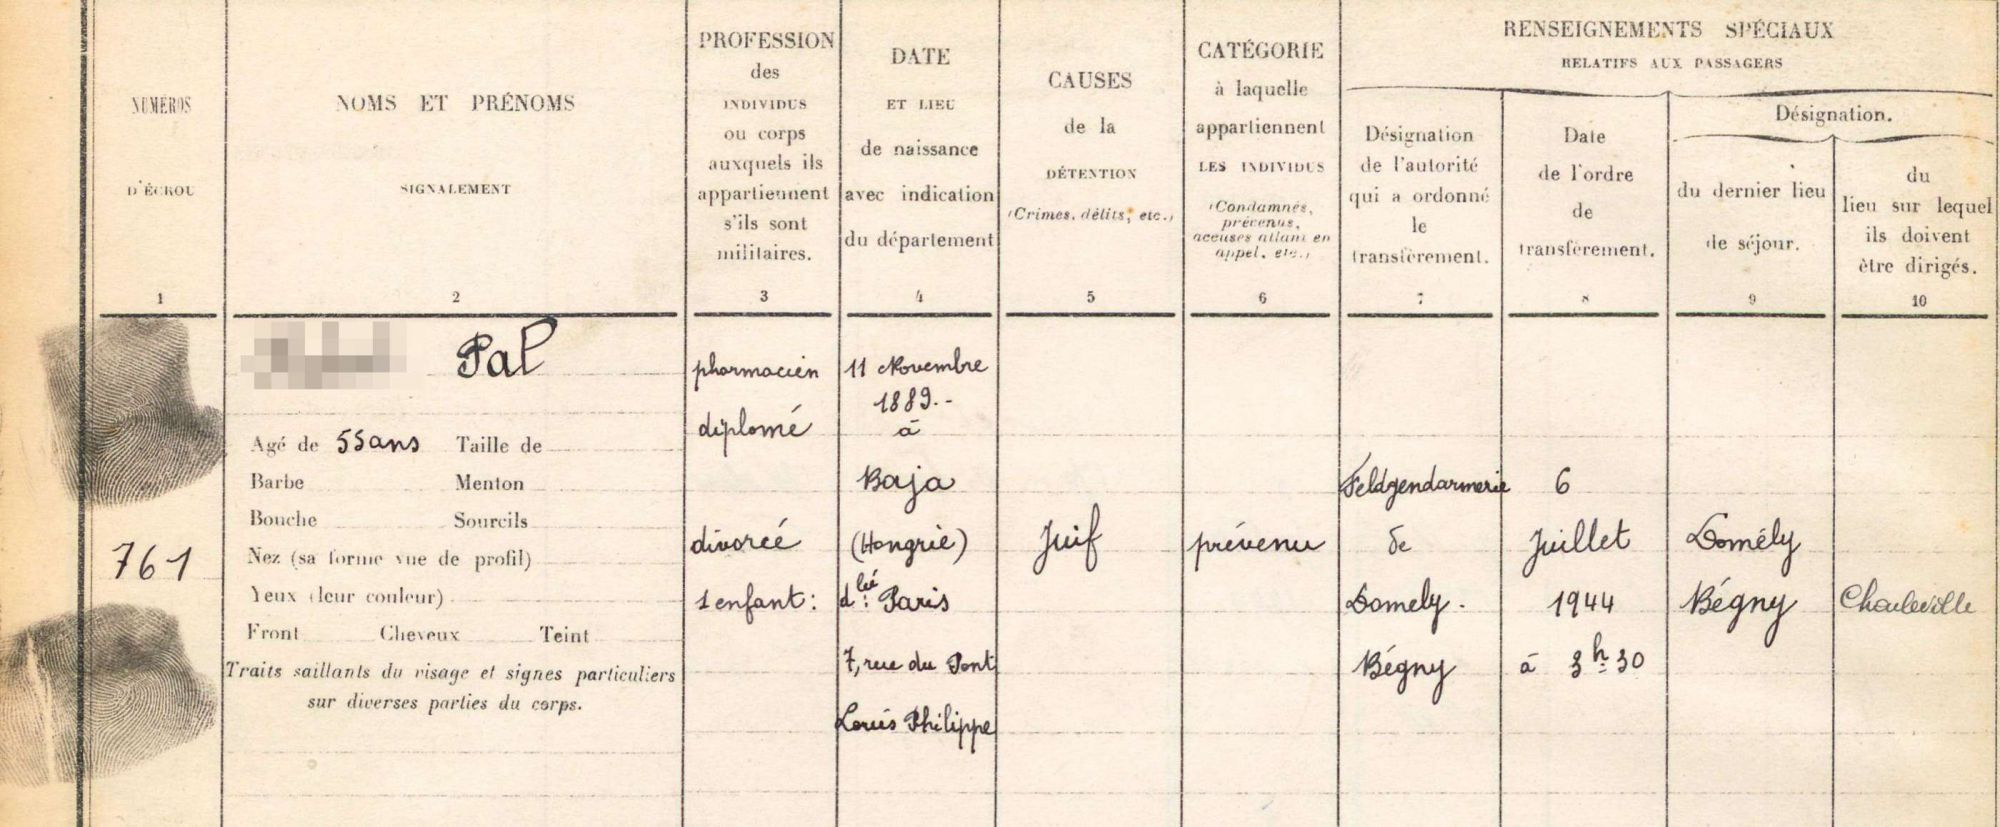 NUMÉROS
D'ÉCROU
1
NOMS ET PRÉNOMS
SIGNALEMENT
2
PROFESSION
des
INDIVIDUS
ou corps
auxquels ils
appartiennent
s'ils sont
militaires.
3
DATE
ET LIEU
de naissance
avec indication
du département
4
CAUSES
de la
DÉTENTION
(Crimes, délits, etc.)
5
CATÉGORIE
à laquelle
appartiennent
LES INDIVIDUS
(Condamnés,
prévenus,
accusés allant en
appel, etc.)
6
RENSEIGNEMENTS SPÉCIAUX
RELATIFS AUX PASSAGERS
Désignation
de l'autorité
qui a ordonné
le
transfèrement.
7
Date
de l'ordre
de
transfèrement.
8
Désignation.
du dernier lieu
de séjour.
9
du
lieu sur lequel
ils doivent
être dirigés.
10
761
Pal
Agé de 55 ans Taille de
Barbe Menton
Bouche Sourcils
Nez (sa forme vue de profil)
Yeux (leur couleur)
Front Cheveux Teint
Traits saillants du visage et signes particuliers
sur diverses parties du corps.
pharmacien
diplomé
divorcé
1 enfant:
11 Novembre
1889.-
à
Baja
(Hongrie)
dlié: Paris
7, rue du Pont
Louis Philippe
Juif
prévenu
Feldgendarmerie
de
Domely.
Bégny
6
Juillet
1944
à 3h30
Domély
Bégny
Charleville